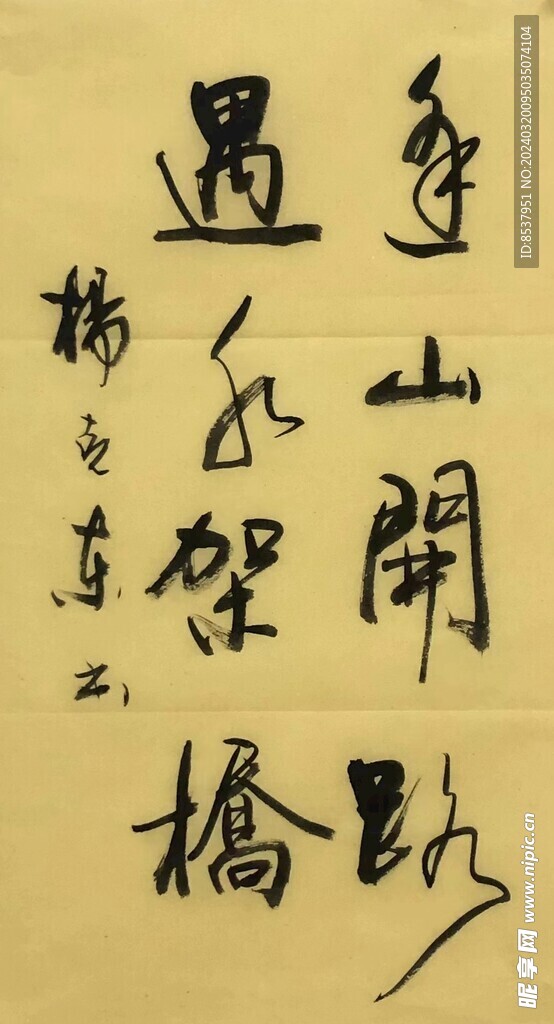 逢山開路
遇水架橋
楊克东书
ID:8537951 NO:20240320095035074104
昵享网 www.nipic.cn